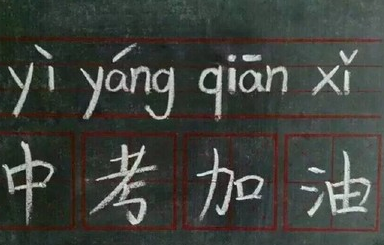 yì yáng qiān xǐ
中考加油